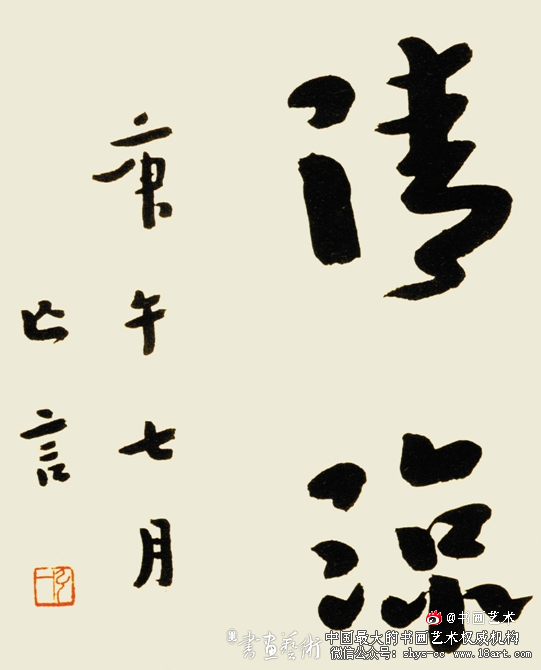 清涼
庚午七月
亡言
@书画艺术
書画藝術
中国最大的书画艺术权威机构
微信公众号：shys-oo www.18art.com